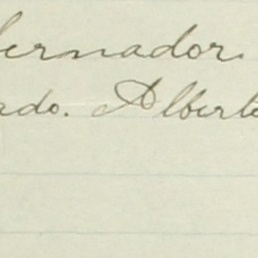 bernador.
ado. Alberto